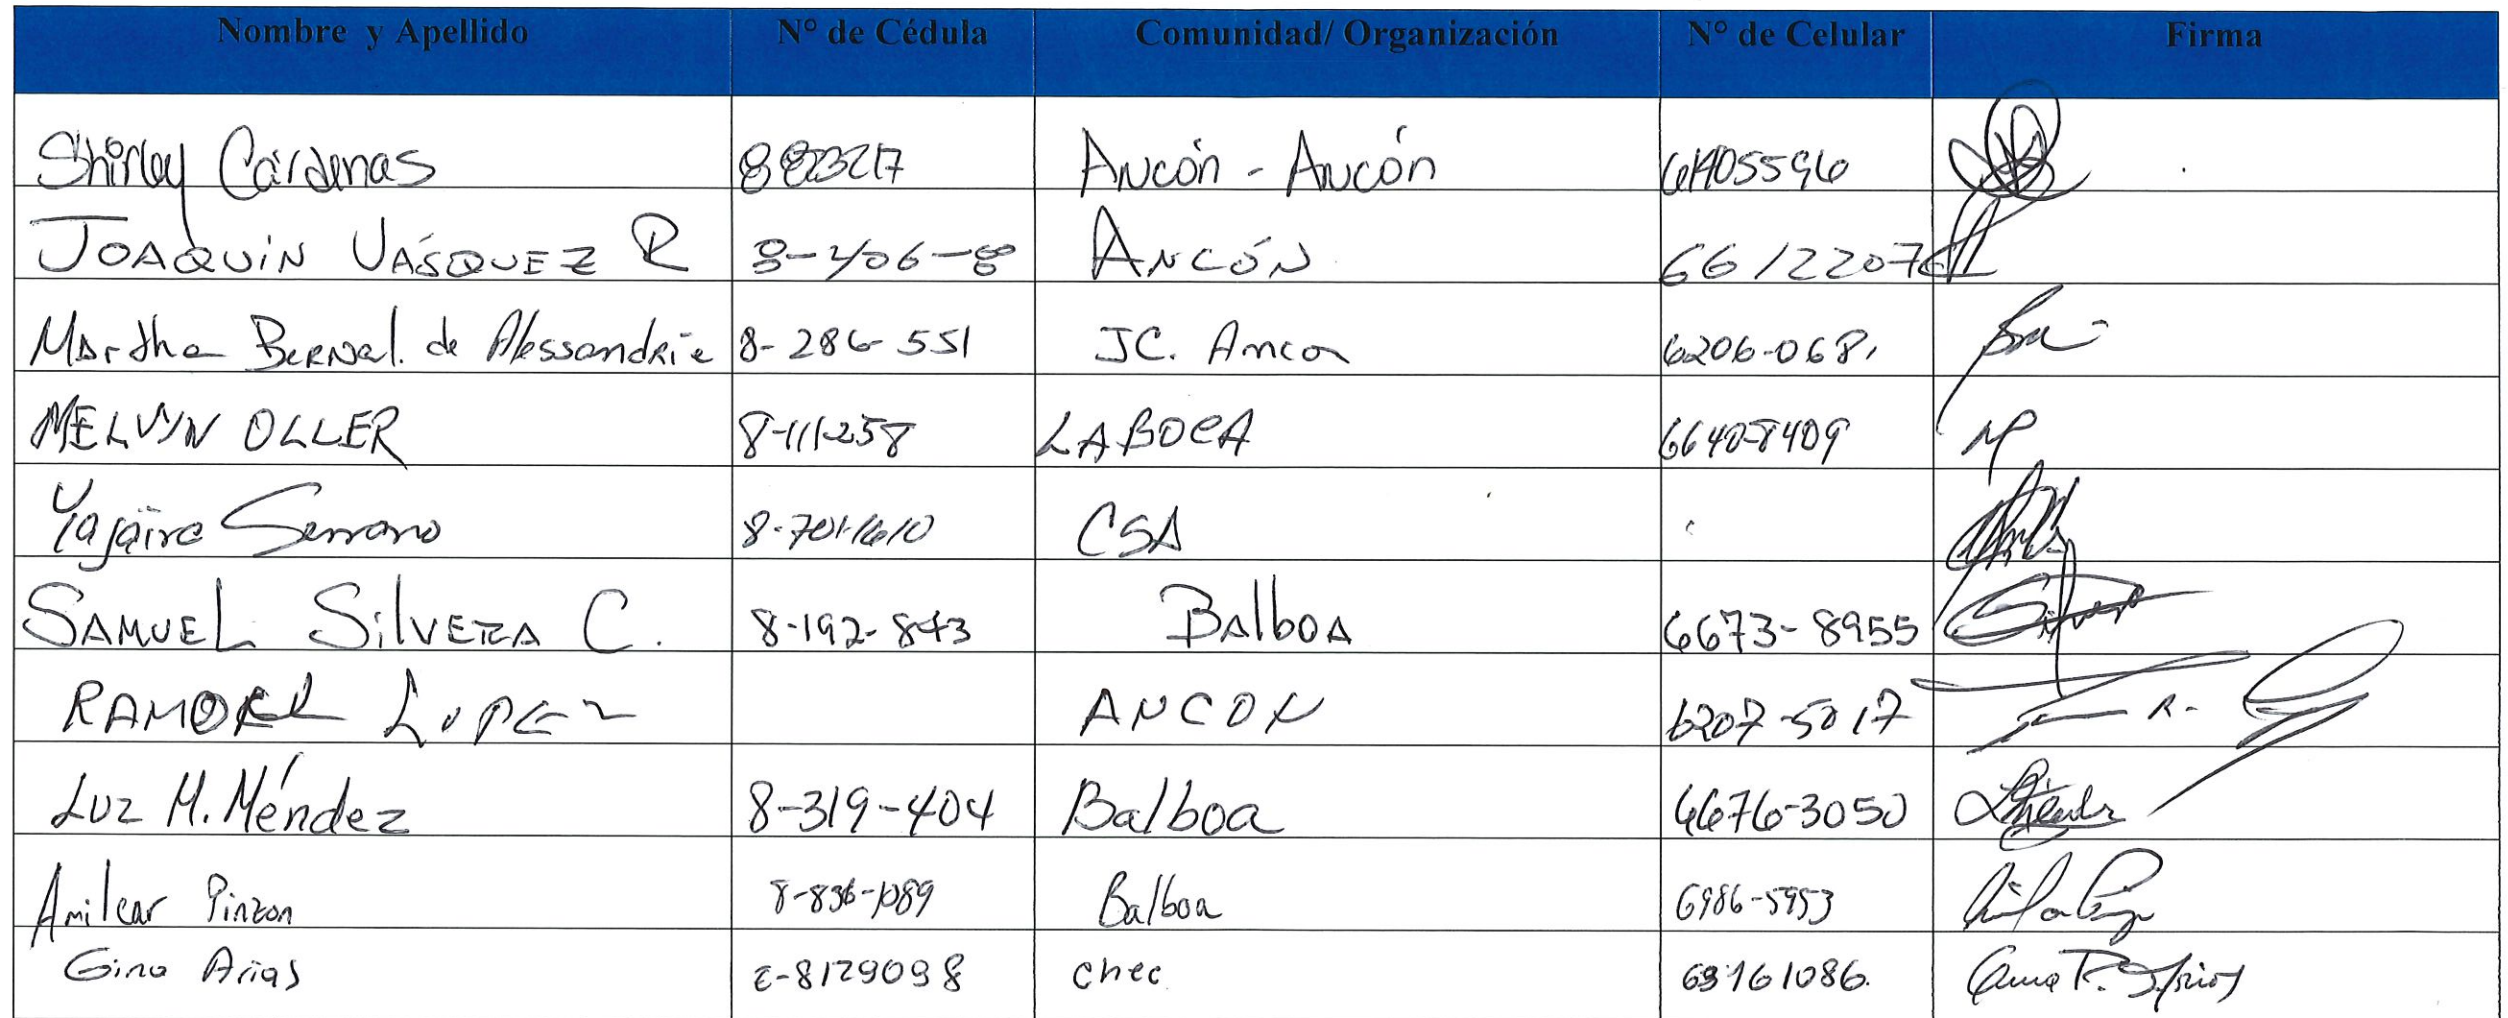 Nombre y Apellido N° de Cédula Comunidad/ Organización N° de Celular Firma
Shirley Cárdenas Ancón - Ancón
JOAQUIN VÁSQUEZ R 8-406-8 ANCÓN
Martha Bernal. de Alessandria 8-286-551 JC. Ancon
MELVYN OLLER LABOCA 6640-8409
Yajaira Serrano CSA
SAMUEL SilVERA C. 8-192-843 BAlboA 6673-8955
LOPEZ ANCON 6207-5017
Luz M. Méndez 8-319-404 Balboa 6676-3050
Amilcar Pinzon 8-836-1089 Balboa 6986-5953
Gina Arias E-8129098 chec